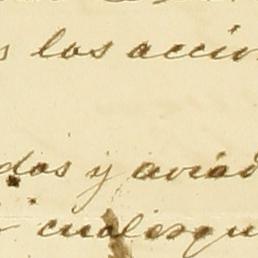 s los accio
dos y aviad
cualesqu